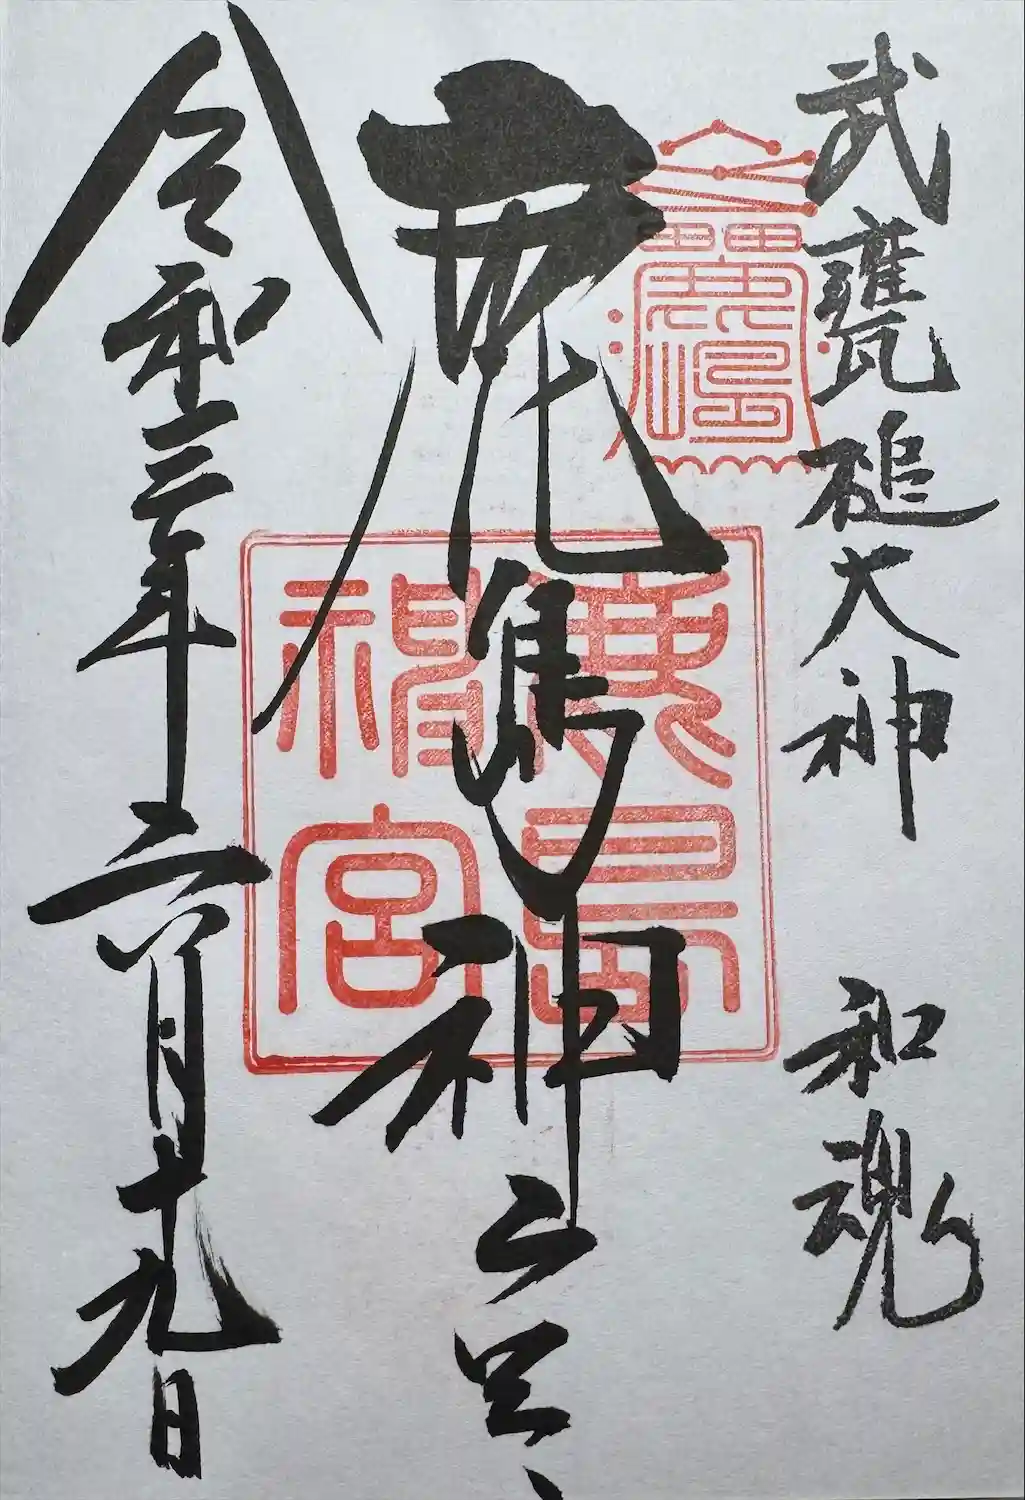 武甕槌大神 和魂
鹿島神宮
令和三年六月十九日
鹿島
鹿島神宮